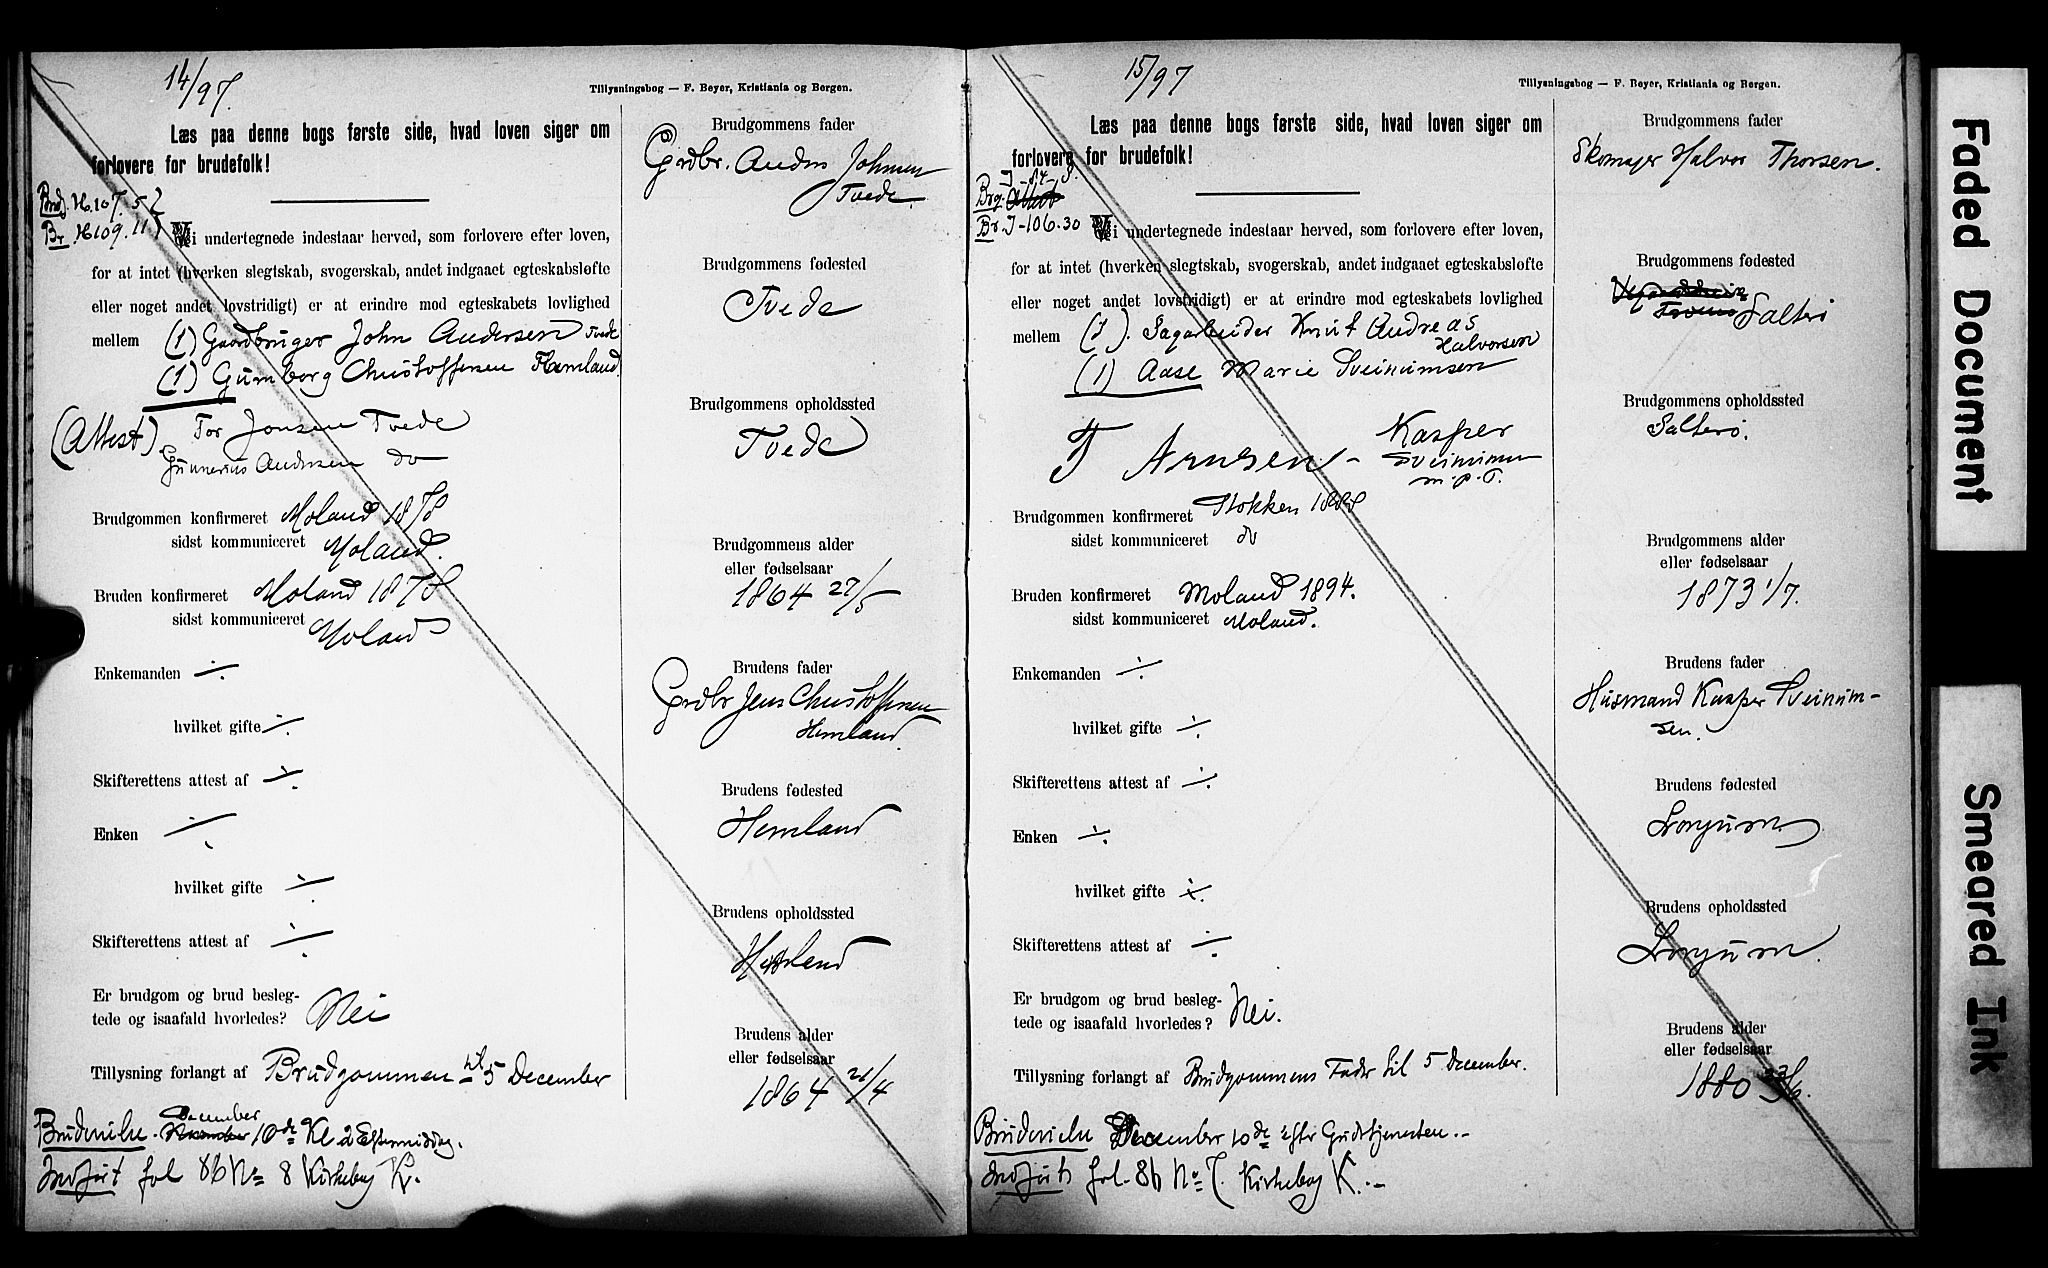 14/97.
Tillysningsbog — F. Beyer, Kristiania og Bergen.
Læs paa denne bogs første side, hvad loven siger om
forlovere for brudefolk!
Brudg. H.107.52
Br H109.
Vi undertegnede indestaar herved, som forlovere efter loven,
for at intet (hverken slegtskab, svogerskab, andet indgaaet egteskabsløfte
eller noget andet lovstridigt) er at erindre mod egteskabets lovlighed
mellem (1) Gaardbruger John Andersen Tvede
(1) Gumborg Christoffersen Hemland.
(Attest) Tor Jonsen Tvede
Gunnerius Andersen do
Brudgommen konfirmeret Moland 1878
sidst kommuniceret Moland.
Bruden konfirmeret Moland 1878
sidst kommuniceret Moland
Enkemanden ÷
hvilket gifte ÷
Skifterettens attest af ÷
Enken ÷
hvilket gifte ÷
Skifterettens attest af ÷
Er brudgom og brud besleg-
tede og isaafald hvorledes? Nei
Tillysning forlangt af Brudgommen til 5 December
December
Brudevielse November 10de Kl 2 Eftermiddag.
Indført fol 86 No 8 Kirkebog K.
Brudgommens fader
Grdbr. Anders Johnsen
Tvede.
Brudgommens fødested
Tvede
Brudgommens opholdssted
Tvede
Brudgommens alder
eller fødselsaar
1864 27/5
Brudens fader
Grdbr Jens Christoffersen
Hemland.
Brudens fødested
Hemland
Brudens opholdssted
Hemland
Brudens alder
eller fødselsaar
1864 21/4
15/97
Tillysningsbog — F. Beyer, Kristiania og Bergen.
Læs paa denne bogs første side, hvad loven siger om
forlovere for brudefolk!
I-84-8.
Brg. Attest
Br. I-106.30
Vi undertegnede indestaar herved, som forlovere efter loven,
for at intet (hverken slegtskab, svogerskab, andet indgaaet egteskabsløfte
eller noget andet lovstridigt) er at erindre mod egteskabets lovlighed
mellem (1). Sagarbeider Knut Andreas
Halvorsen
(1) Aase Marie Sveinumsen
T Arnsen - Kasper
Sveinumsen
m.p.P.
Brudgommen konfirmeret Stokken 1888
sidst kommuniceret do
Bruden konfirmeret Moland 1894.
sidst kommuniceret Moland.
Enkemanden ÷
hvilket gifte ÷
Skifterettens attest af ÷
Enken ÷
hvilket gifte ÷
Skifterettens attest af ÷
Er brudgom og brud besleg-
tede og isaafald hvorledes? Nei.
Tillysning forlangt af Brudgommens Fader til 5 December.
Brudevielse December 10de efter Gudstjenesten.-
Indført fol. 86 No 7. Kirkebog K.-
Brudgommens fader
Skomager Halvor Thorsen.
Brudgommens fødested
Salterø
Brudgommens opholdssted
Salterø.
Brudgommens alder
eller fødselsaar
1873 1/7.
Brudens fader
Husmand Kasper Sveinum-
sen.
Brudens fødested
Longum
Brudens opholdssted
Longum.
Brudens alder
eller fødselsaar
1880 23/6.
Faded Document
Smeared Ink